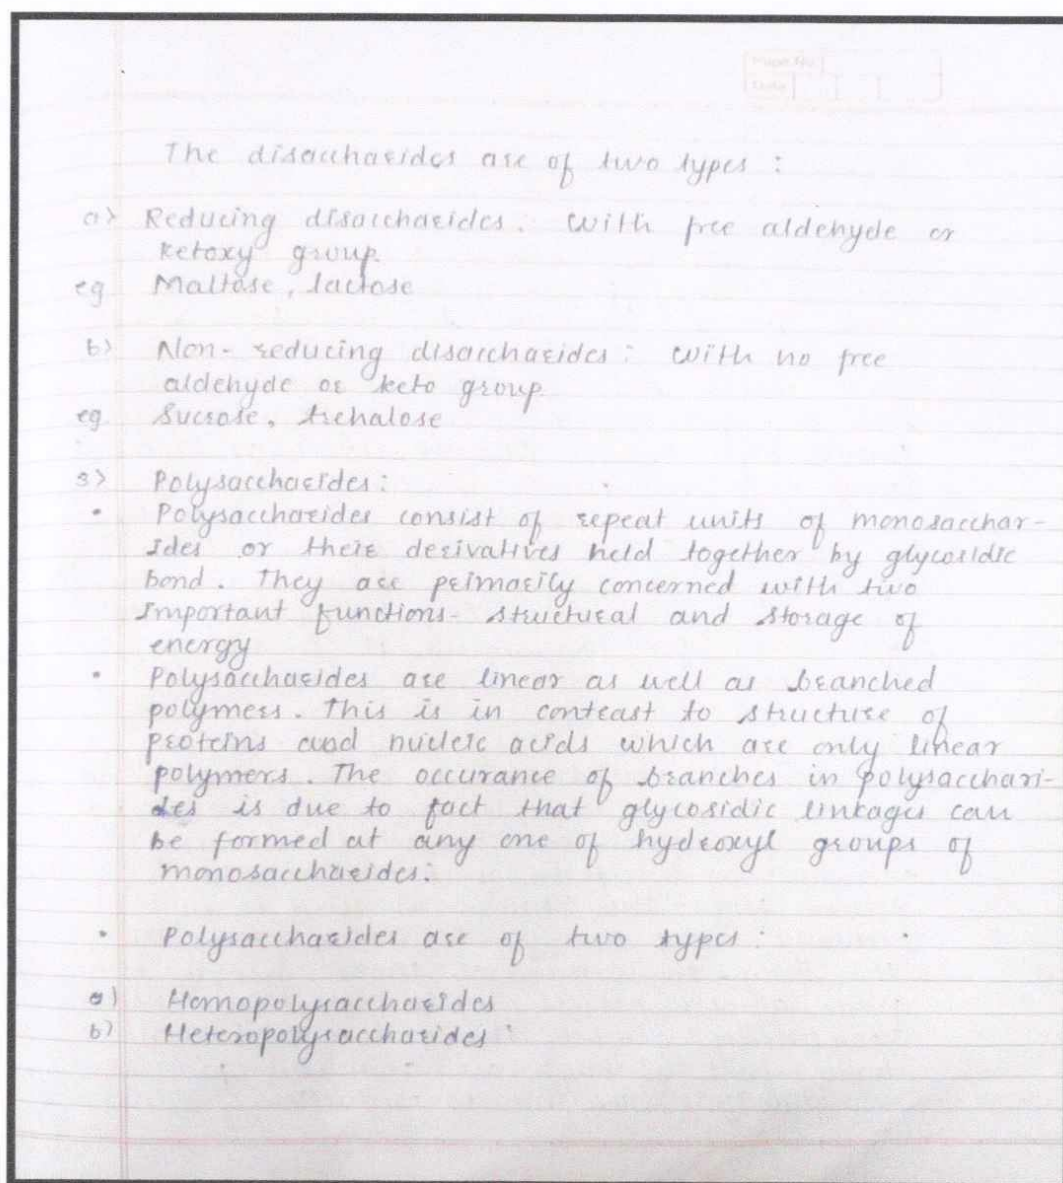 Page No.
Date
The disaccharides are of two types :
a) Reducing disaccharides : with free aldehyde or
ketoxy group
eg Maltose, lactose
b) Non-reducing disaccharides : with no free
aldehyde or keto group
eg. Sucrose, trehalose
3) Polysaccharides :
• Polysaccharides consist of repeat units of monosacchar-
ides or their derivatives held together by glycosidic
bond. They are primarily concerned with two
Important functions - structural and storage of
energy
• Polysaccharides are linear as well as branched
polymers. This is in contrast to structure of
proteins and nucleic acids which are only linear
polymers. The occurance of branches in polysacchari-
des is due to fact that glycosidic linkages can
be formed at any one of hydroxyl groups of
monosaccharides.
• Polysaccharides are of two types :
a) Homopolysaccharides
b) Heteropolysaccharides :